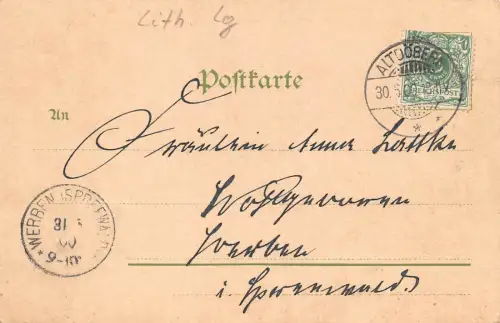 Lith. Lg
ALTDÖBERN
30.5.00
REICHSPOST
Postkarte
An
Fräulein Anna Lattke
Wohlgeboren
Werben
i. Spreewald
WERBEN (SPREEWALD)
31 5
00
9-10